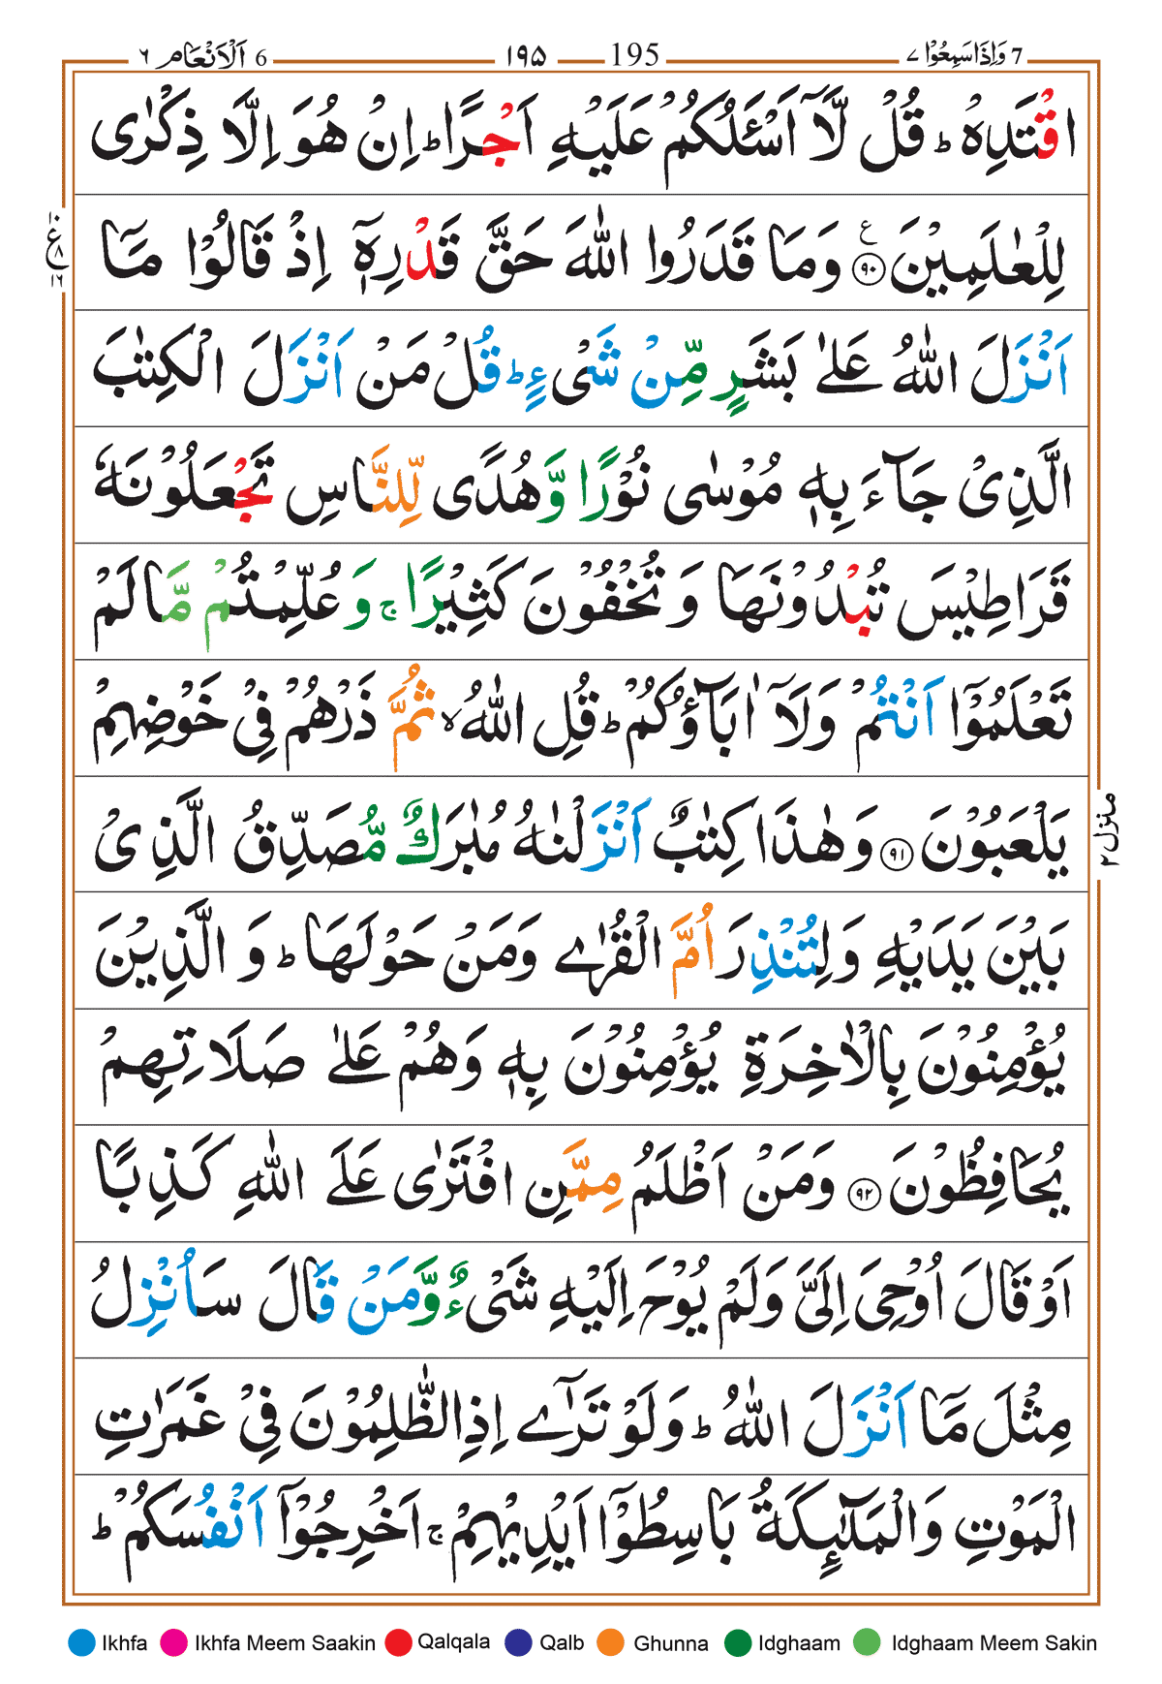 7 وَاِذَاسَمِعُوْا ۷ 195 ۱۹۵ 6 اَلْاَنْعَام ٦
اقْتَدِهْ ؕ قُلْ لَّاۤ اَسْـَٔلُكُمْ عَلَيْهِ اَجْرًا ؕ اِنْ هُوَ اِلَّا ذِكْرٰى
لِلْعٰلَمِيْنَ ۹۰ ع وَمَا قَدَرُوا اللّٰهَ حَقَّ قَدْرِهٖۤ اِذْ قَالُوْا مَاۤ
اَنْزَلَ اللّٰهُ عَلٰى بَشَرٍ مِّنْ شَىْءٍ ؕ قُلْ مَنْ اَنْزَلَ الْكِتٰبَ
الَّذِىْ جَآءَ بِهٖ مُوْسٰى نُوْرًا وَّهُدًى لِّلنَّاسِ تَجْعَلُوْنَهٗ
قَرَاطِيْسَ تُبْدُوْنَهَا وَ تُخْفُوْنَ كَثِيْرًا ۚ وَ عُلِّمْتُمْ مَّا لَمْ
تَعْلَمُوْۤا اَنْتُمْ وَلَاۤ اٰبَآؤُكُمْ ؕ قُلِ اللّٰهُ ۙ ثُمَّ ذَرْهُمْ فِىْ خَوْضِهِمْ
يَلْعَبُوْنَ ۹۱ وَهٰذَا كِتٰبٌ اَنْزَلْنٰهُ مُبٰرَكٌ مُّصَدِّقُ الَّذِىْ
بَيْنَ يَدَيْهِ وَلِتُنْذِرَ اُمَّ الْقُرٰى وَمَنْ حَوْلَهَا ؕ وَ الَّذِيْنَ
يُؤْمِنُوْنَ بِالْاٰخِرَةِ يُؤْمِنُوْنَ بِهٖ وَهُمْ عَلٰى صَلَاتِهِمْ
يُحَافِظُوْنَ ۹۲ وَمَنْ اَظْلَمُ مِمَّنِ افْتَرٰى عَلَى اللّٰهِ كَذِبًا
اَوْ قَالَ اُوْحِىَ اِلَىَّ وَلَمْ يُوْحَ اِلَيْهِ شَىْءٌ وَّمَنْ قَالَ سَاُنْزِلُ
مِثْلَ مَاۤ اَنْزَلَ اللّٰهُ ؕ وَلَوْ تَرٰٓى اِذِ الظّٰلِمُوْنَ فِىْ غَمَرٰتِ
الْمَوْتِ وَالْمَلٰٓئِكَةُ بَاسِطُوْۤا اَيْدِيْهِمْ ۚ اَخْرِجُوْۤا اَنْفُسَكُمْ ؕ
منزل ۲
۱۰ ع ۸ ۱٦
Ikhfa Ikhfa Meem Saakin Qalqala Qalb Ghunna Idghaam Idghaam Meem Sakin